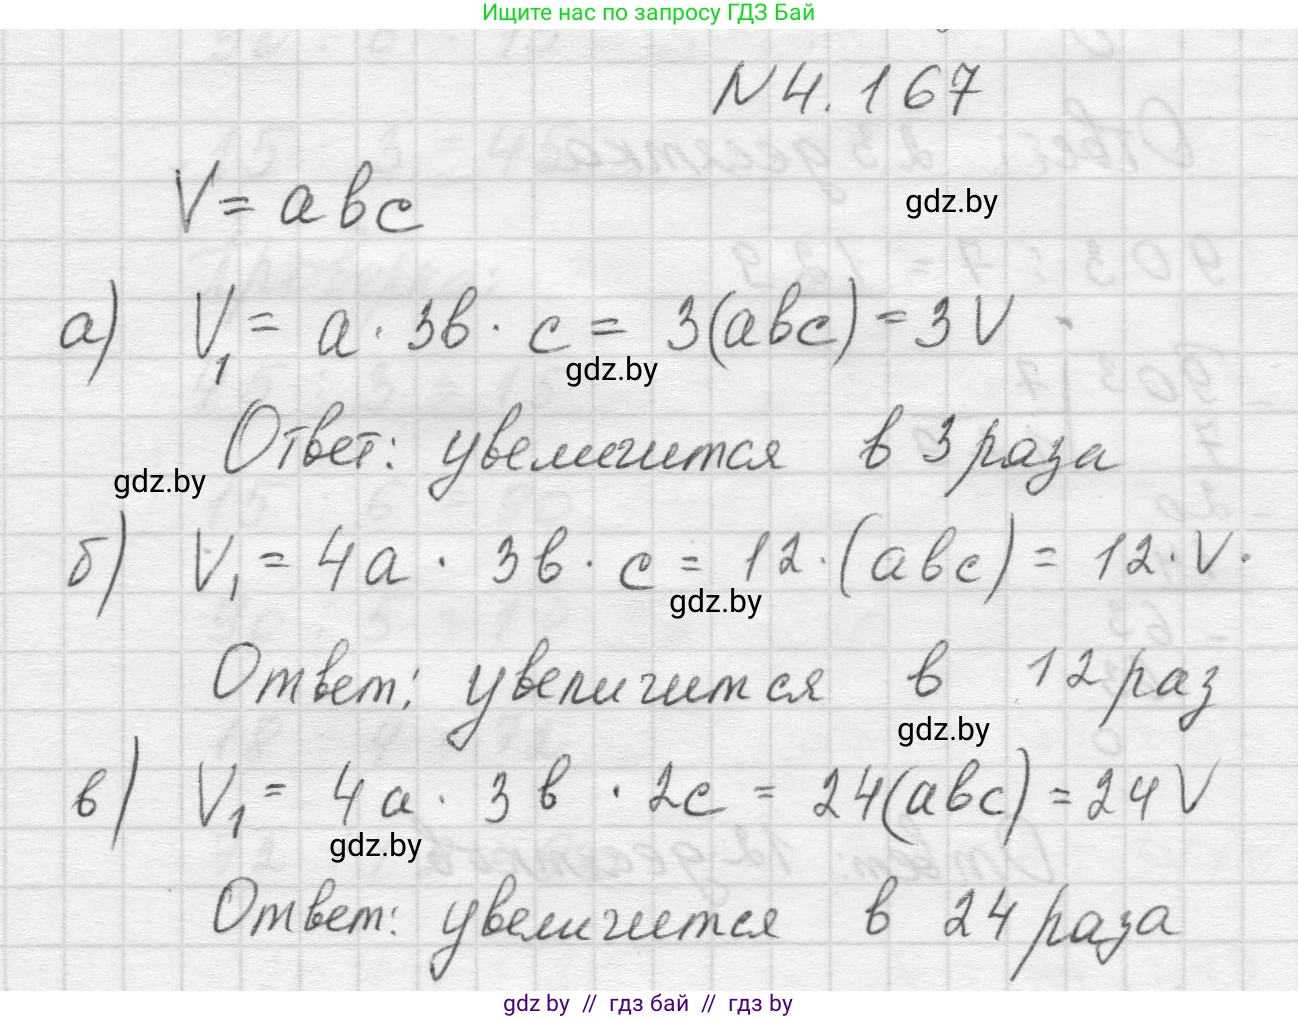 Ищите нас по запросу ГДЗ Бай
N 4.167
V = abc
gdz.by
а) V₁ = a · 3b · c = 3(abc) = 3V
gdz.by
Ответ: увеличится в 3 раза
gdz.by
б) V₁ = 4a · 3b · c = 12 · (abc) = 12 · V.
gdz.by
Ответ: увеличится в 12 раз
gdz.by
в) V₁ = 4a · 3b · 2c = 24(abc) = 24V
gdz.by
Ответ: увеличится в 24 раза
gdz.by // гдз бай // гдз by